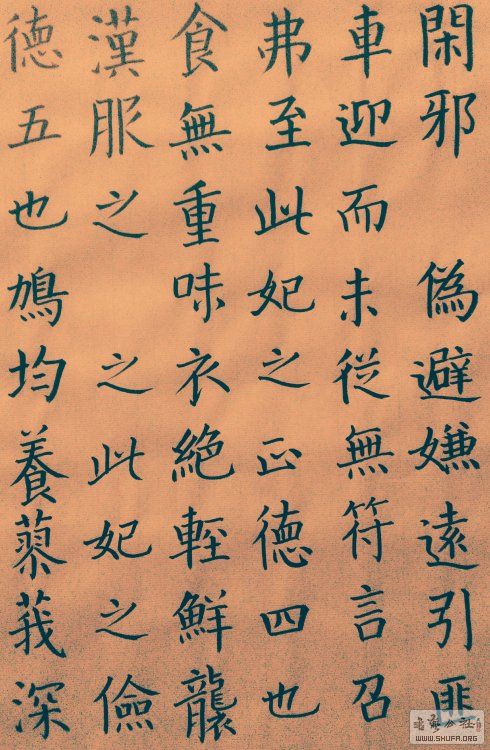 閑邪 偽避嫌遠引匪
車迎而未從無符言召
弗至此妃之正德四也
食無重味衣絕輕鮮襲
漢服之 之此妃之儉
德五也鳲均養蓼莪深
WWW.SHUFA.ORG